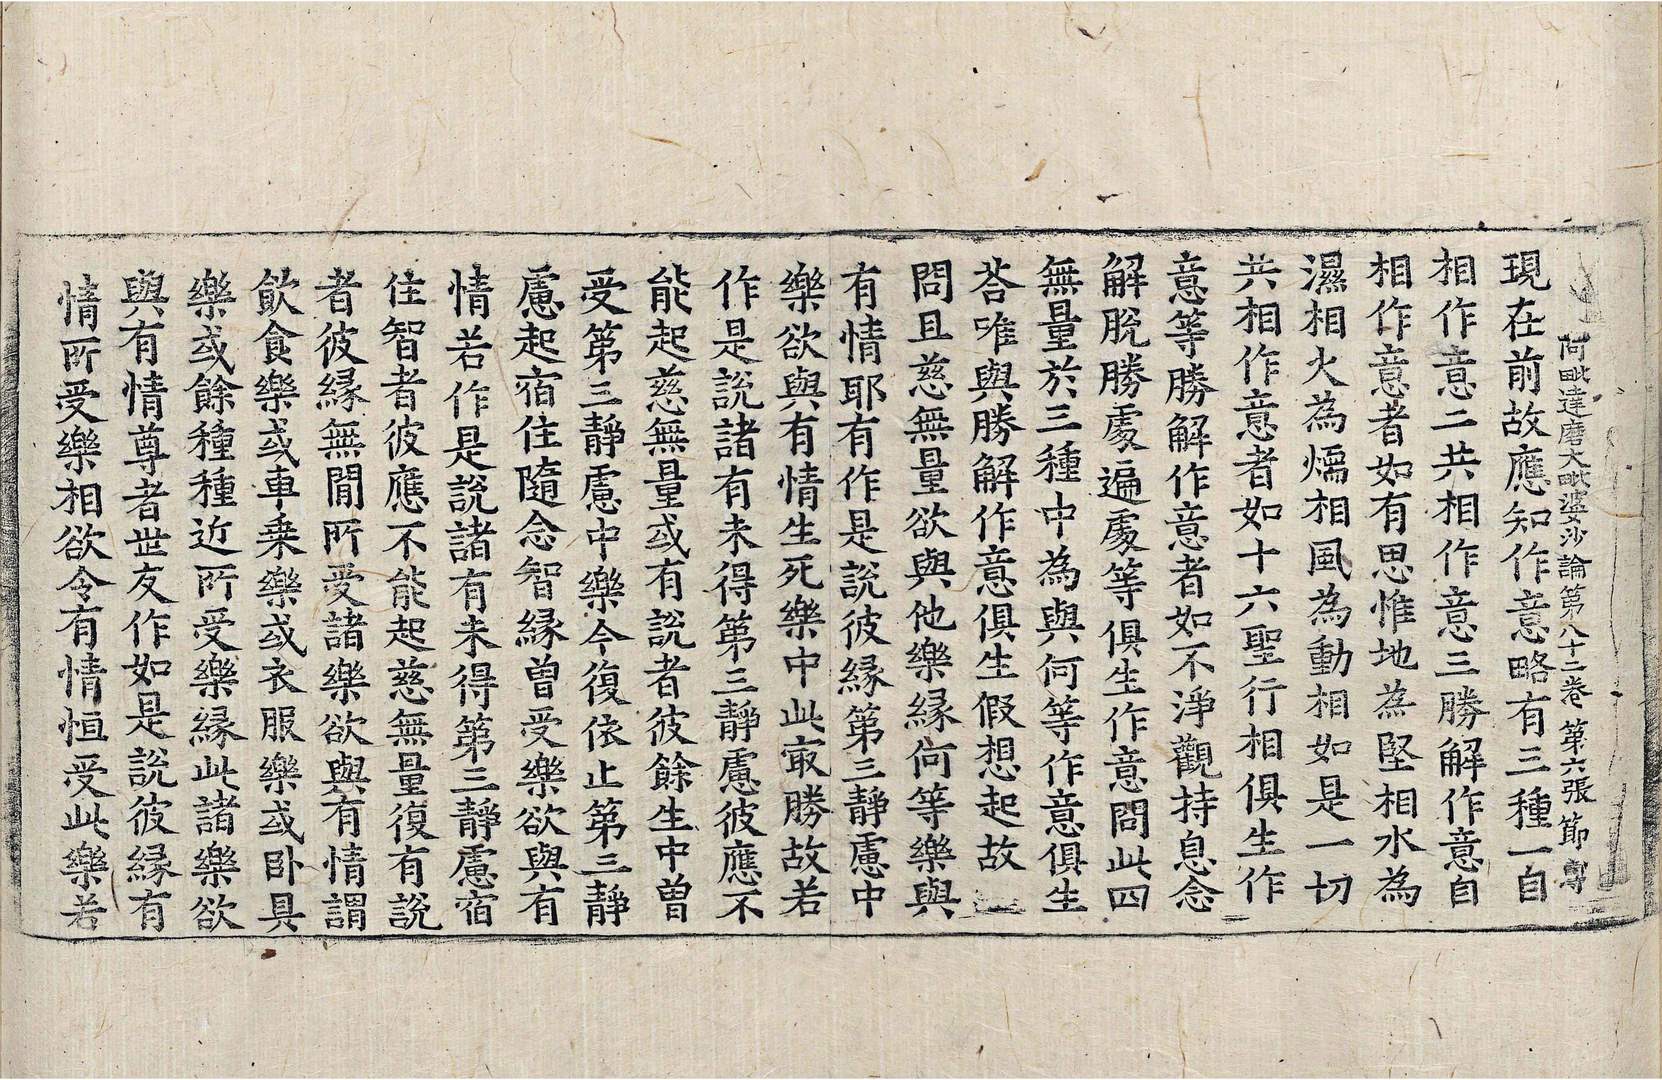 阿毗達磨大毗婆沙論第八十二卷 第六張 節
現在前故應知作意略有三種一自
相作意二共相作意三勝解作意自
相作意者如有思惟地為堅相水為
濕相火為煗相風為動相如是一切
共相作意者如十六聖行相俱生作
意等勝解作意者如不淨觀持息念
解脫勝處遍處等俱生作意問此四
無量於三種中為與何等作意俱生
荅唯與勝解作意俱生假想起故
問且慈無量欲與他樂緣何等樂與
有情耶有作是說彼緣第三靜慮中
樂欲與有情生死樂中此㝡勝故若
作是說諸有未得第三靜慮彼應不
能起慈無量或有說者彼餘生中曾
受第三靜慮中樂今復依止第三靜
慮起宿住隨念智緣曾受樂欲與有
情若作是說諸有未得第三靜慮宿
住智者彼應不能起慈無量復有說
者彼緣無間所受諸樂欲與有情謂
飲食樂或車乗樂或衣服樂或卧具
樂或餘種種近所受樂緣此諸樂欲
與有情尊者世友作如是說彼緣有
情所受樂相欲令有情恒受此樂若